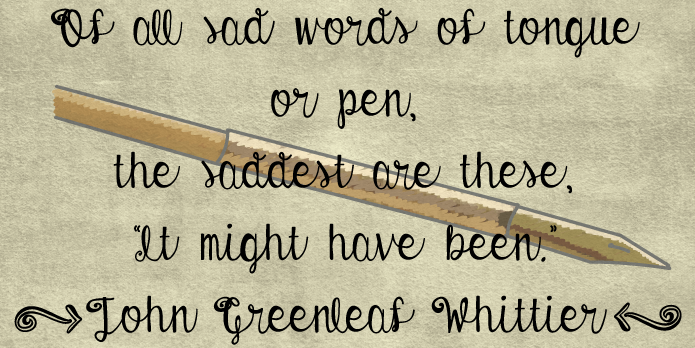 Of all sad words of tongue
or pen,
the saddest are these,
"It might have been."
John Greenleaf Whittier